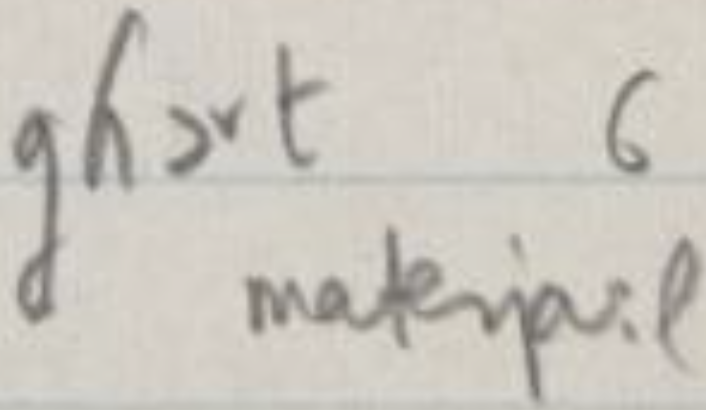 ghort 6
materjail